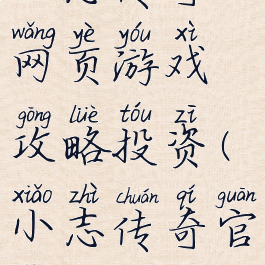 wǎng yè yóu xì
网页游戏
gōng lüè tóu zī
攻略投资(
xiǎo zhì chuán qí guān
小志传奇官